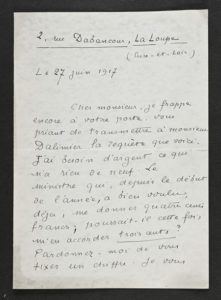 2, rue Dabancour, La Loupe
(Eure-et-Loir)
Le 27 juin 1917
Cher monsieur, je frappe
encore à votre porte, vous
priant de transmettre à monsieur
Dalimier la requête que voici.
J'ai besoin d'argent ce qui
n'a rien de neuf. Le
ministre qui, depuis le début
de l'année, a bien voulu,
déjà, me donner quatre cents
francs, pourrait-il cette fois,
m'en accorder trois cents?
Pardonnez-moi de vous
fixer un chiffre. Je vous